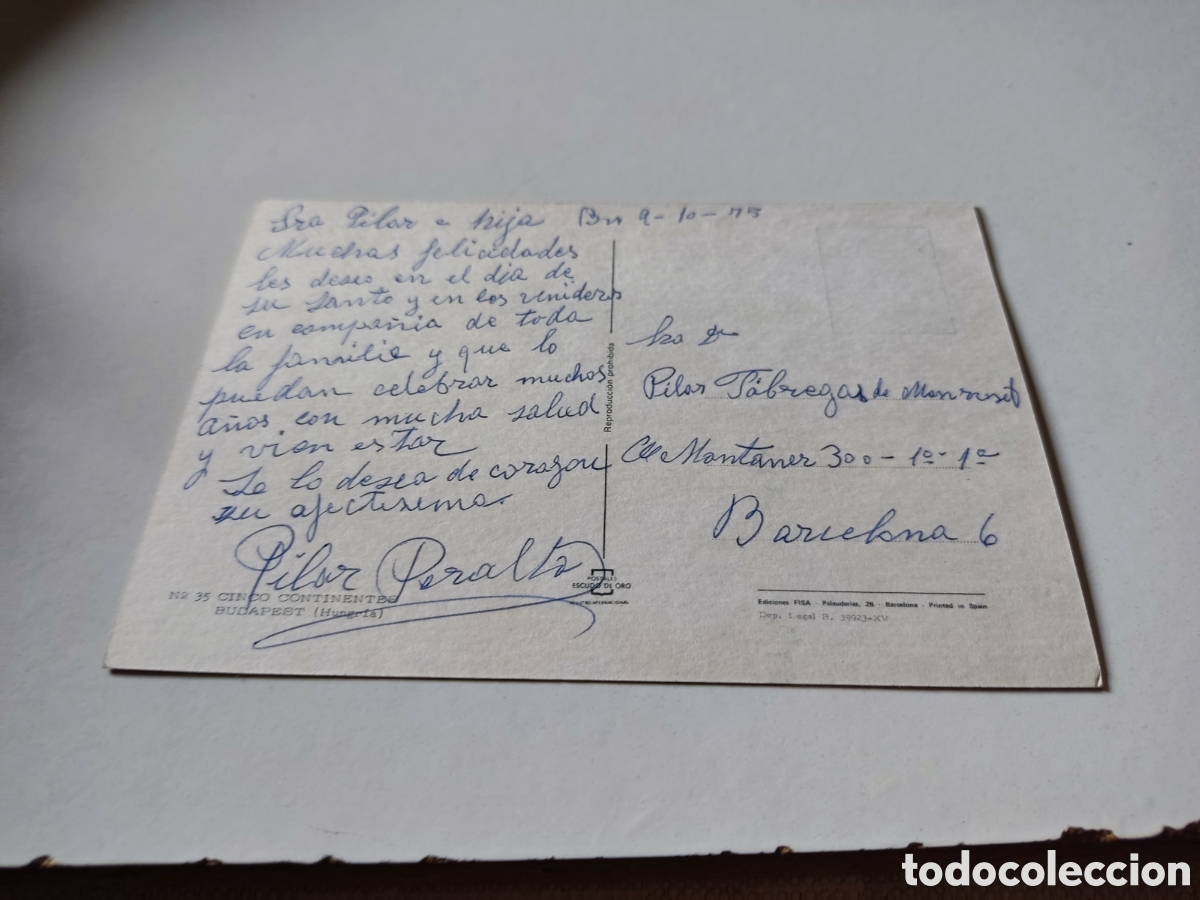 Sra Pilar e hija Bn 9-10-75
Muchas felicidades
les deseo en el dia de
su santo y en los venideros
en compañia de toda
la familia y que lo
puedan celebrar muchos
años con mucha salud
y vien estar
Se lo desea de corazon
su afectisima.
Pilar Peralta
Nº 35 CINCO CONTINENTES
BUDAPEST (Hungría)
Reproducción prohibida
POSTALES
ESCUDO DE ORO
REGISTRO INTERNACIONAL
Sra Dª
Pilar Fábregas de Monroset
C/ Montaner 300-1º-1ª
Barcelona 6
Ediciones FISA - Palaudarias, 26 - Barcelona - Printed in Spain
Dep. Legal B. 39923-XV
todocoleccion